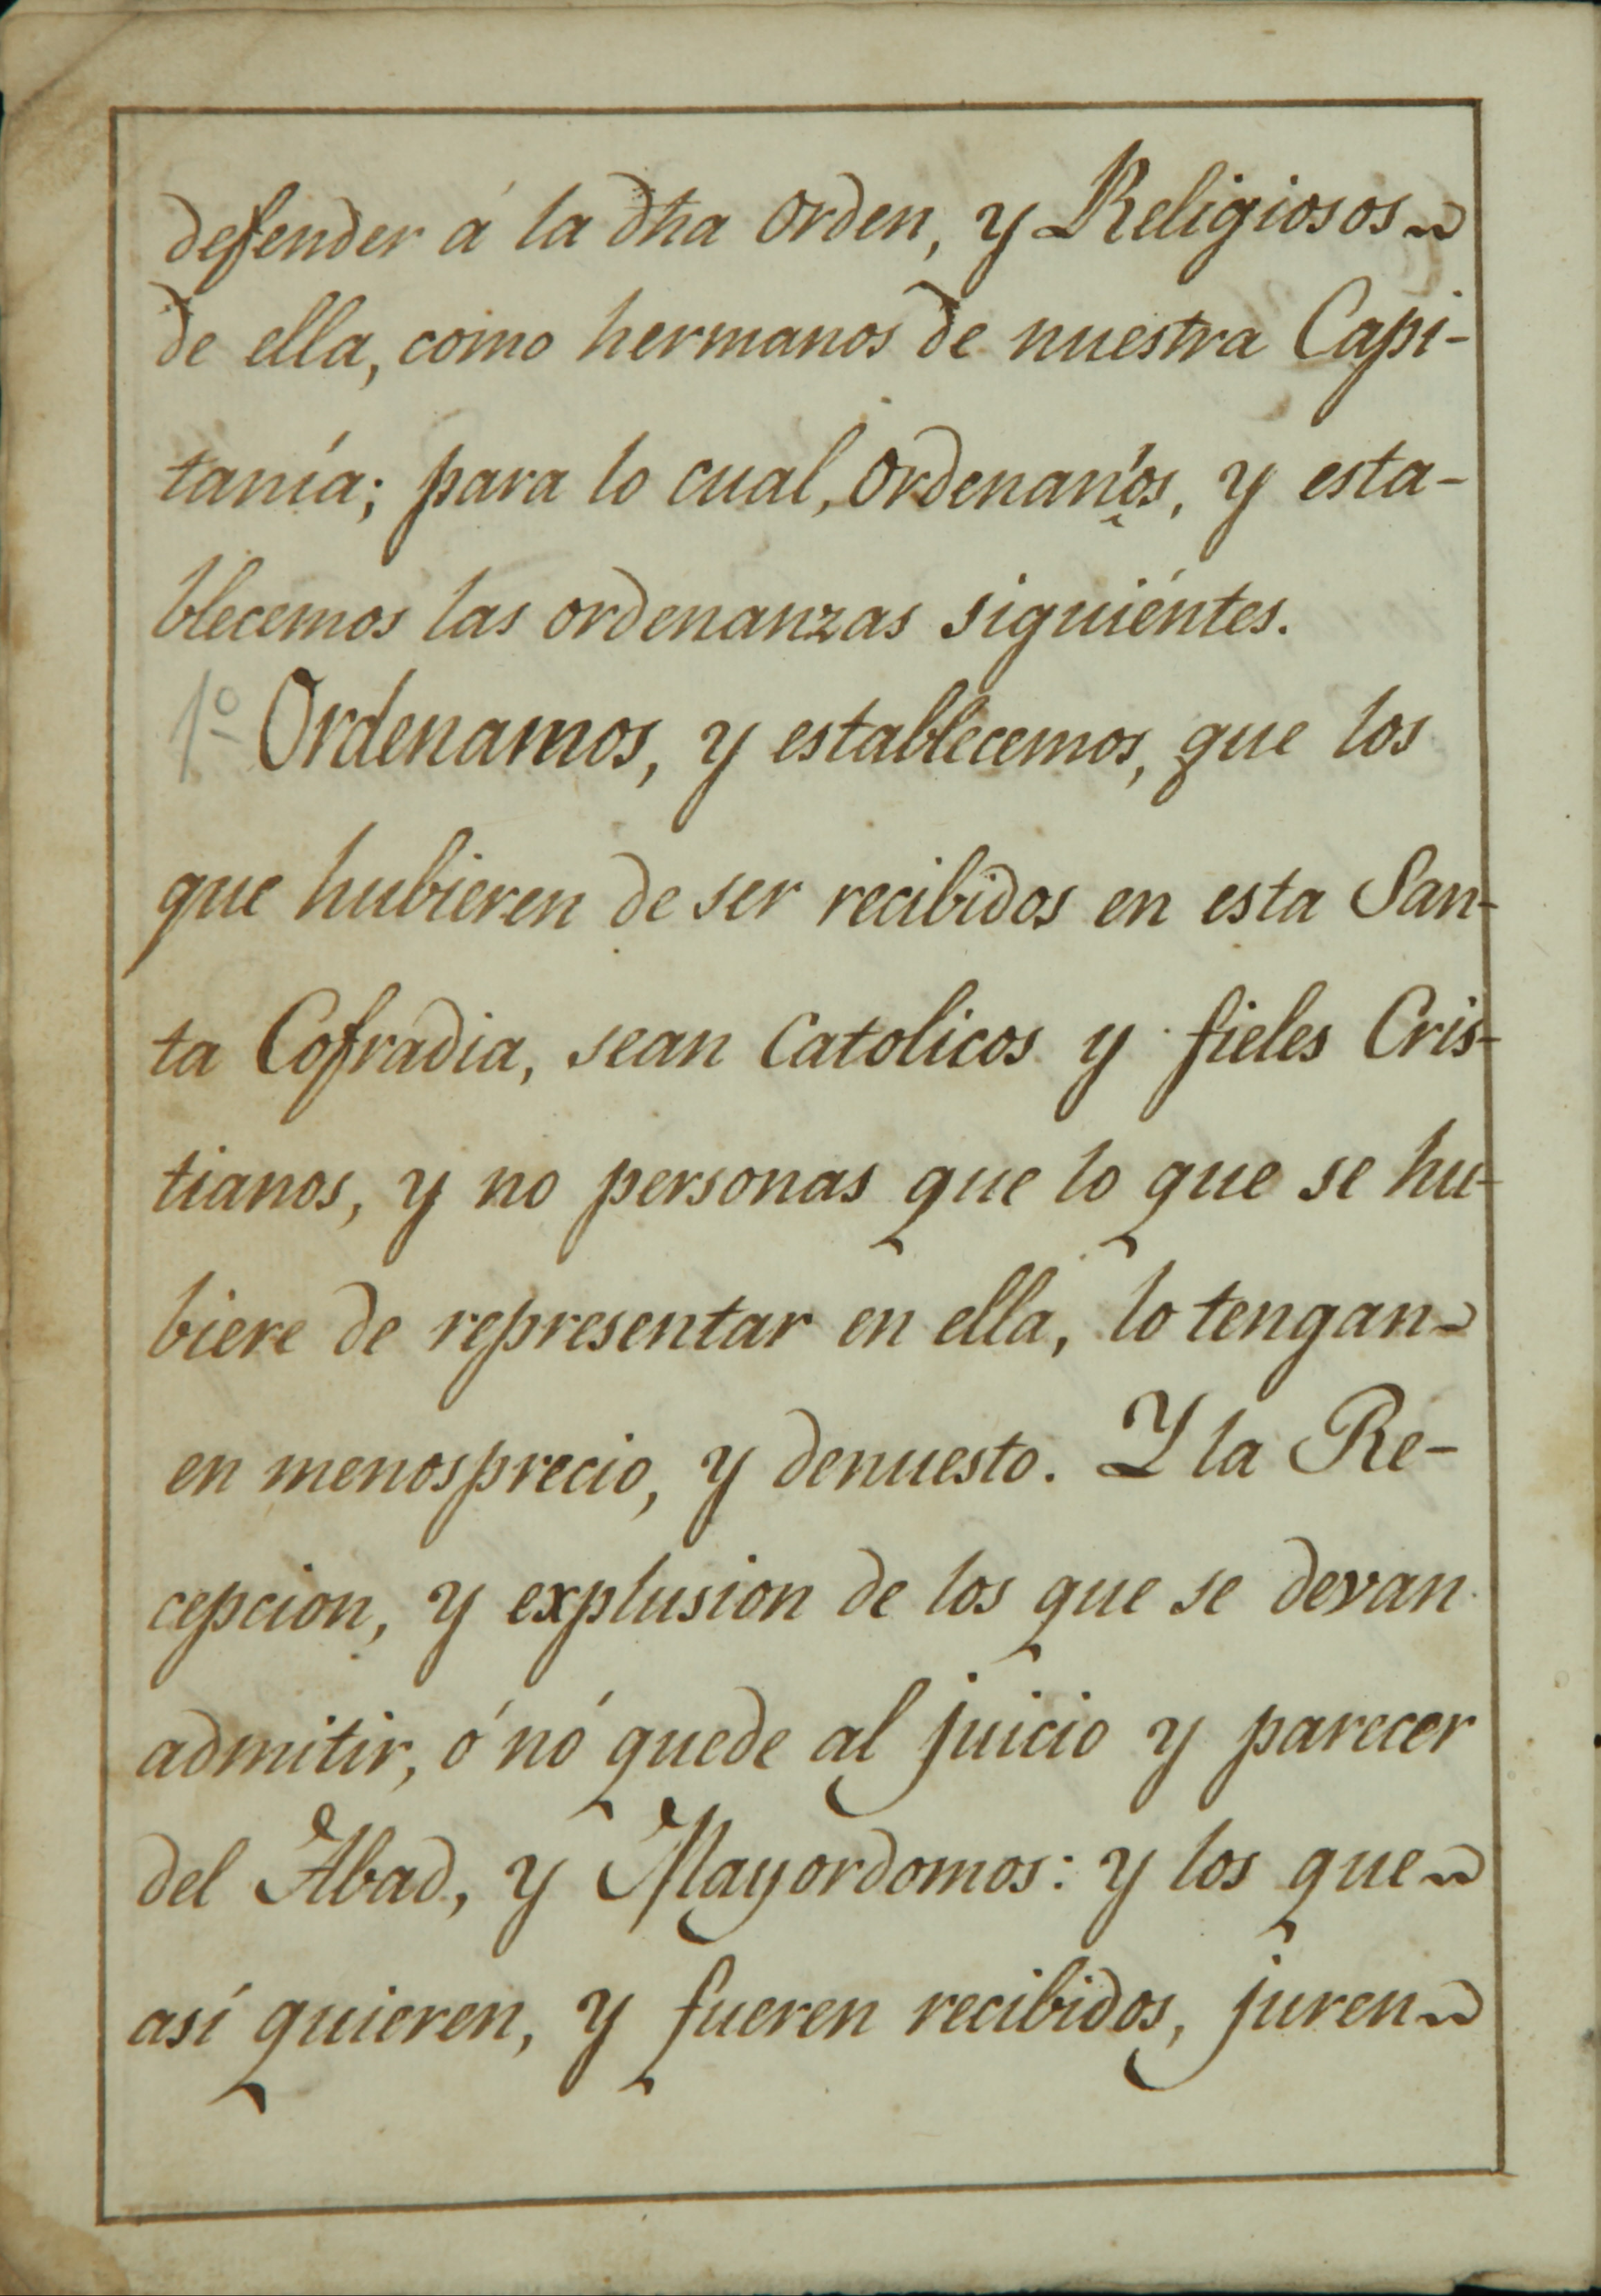 defender á la dha orden, y Religiosos
de ella, como hermanos de nuestra Capi-
tanía; para lo cual, ordenamos, y esta-
blecemos las ordenanzas siguiéntes.
1º Ordenamos, y establecemos, que los
que hubieren de ser recibidos en esta San-
ta Cofradia, sean Catolicos y fieles Cris-
tianos, y no personas que lo que se hu-
biere de representar en ella, lo tengan
en menosprecio, y denuesto. Y la Re-
cepcion, y explusion de los que se devan
admitir, ó nó quede al juicio y parecer
del Abad, y Mayordomos: y los que
así quieren, y fueren recibidos, juren